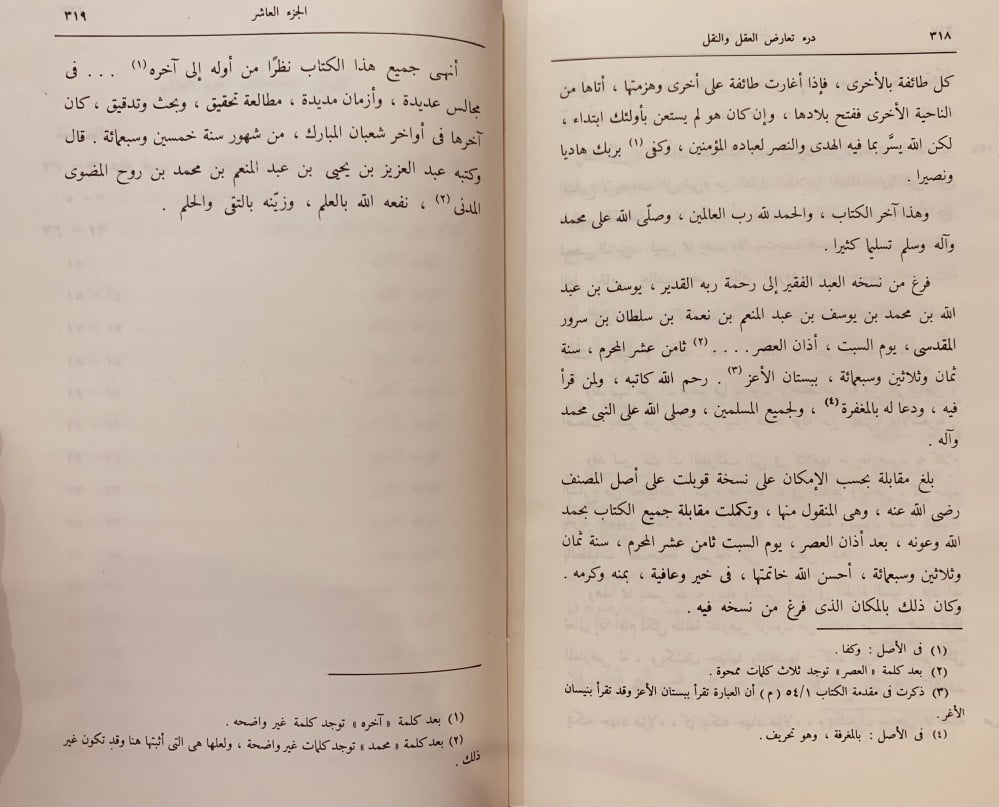 ٣١٨
درء تعارض العقل والنقل
كل طائفة بالأخرى ، فإذا أغارت طائفة على أخرى وهزمتها ، أتاها من
الناحية الأخرى ففتح بلادها ، وإن كان هو لم يستعن بأولئك ابتداء ،
لكن الله يسَّر بما فيه الهدى والنصر لعباده المؤمنين ، وكفى (١) بربك هاديا
ونصيرا .
وهذا آخر الكتاب ، والحمد لله رب العالمين ، وصلّى الله على محمد
وآله وسلم تسليما كثيرا .
فرغ من نسخه العبد الفقير إلى رحمة ربه القدير ، يوسف بن عبد
الله بن محمد بن يوسف بن عبد المنعم بن نعمة بن سلطان بن سرور
المقدسى ، يوم السبت ، أذان العصر .... (٢) ثامن عشر المحرم ، سنة
ثمان وثلاثين وسبعمائة ، ببستان الأعز (٣) . رحم الله كاتبه ، ولمن قرأ
فيه ، ودعا له بالمغفرة (٤) ، ولجميع المسلمين ، وصلى الله على النبى محمد
وآله .
بلغ مقابلة بحسب الإمكان على نسخة قوبلت على أصل المصنف
رضى الله عنه ، وهى المنقول منها ، وتكملت مقابلة جميع الكتاب بحمد
الله وعونه ، بعد أذان العصر ، يوم السبت ثامن عشر المحرم ، سنة ثمان
وثلاثين وسبعمائة ، أحسن الله خاتمتها ، فى خير وعافية ، بمنه وكرمه .
وكان ذلك بالمكان الذى فرغ من نسخه فيه .
(١) فى الأصل : وكفا .
(٢) بعد كلمة « العصر » توجد ثلاث كلمات ممحوة .
(٣) ذكرت فى مقدمة الكتاب ٥٤/١ (م) أن العبارة تقرأ ببستان الأعز وقد تقرأ بنيسان
الأغر .
(٤) فى الأصل : بالمغرفة ، وهو تحريف .
الجزء العاشر
٣١٩
أنهى جميع هذا الكتاب نظرًا من أوله إلى آخره (١) ... فى
مجالس عديدة ، وأزمان مديدة ، مطالعة تحقيق ، وبحث وتدقيق ، كان
آخرها فى أواخر شعبان المبارك ، من شهور سنة خمسين وسبعمائة . قال
وكتبه عبد العزيز بن يحيى بن عبد المنعم بن محمد بن روح المضوى
المدنى (٢) ، نفعه الله بالعلم ، وزيّنه بالتقى والحلم .
(١) بعد كلمة « آخره » توجد كلمة غير واضحه .
(٢) بعد كلمة « محمد » توجد كلمات غير واضحة ، ولعلها هى التى أثبتها هنا وقد تكون غير
ذلك .